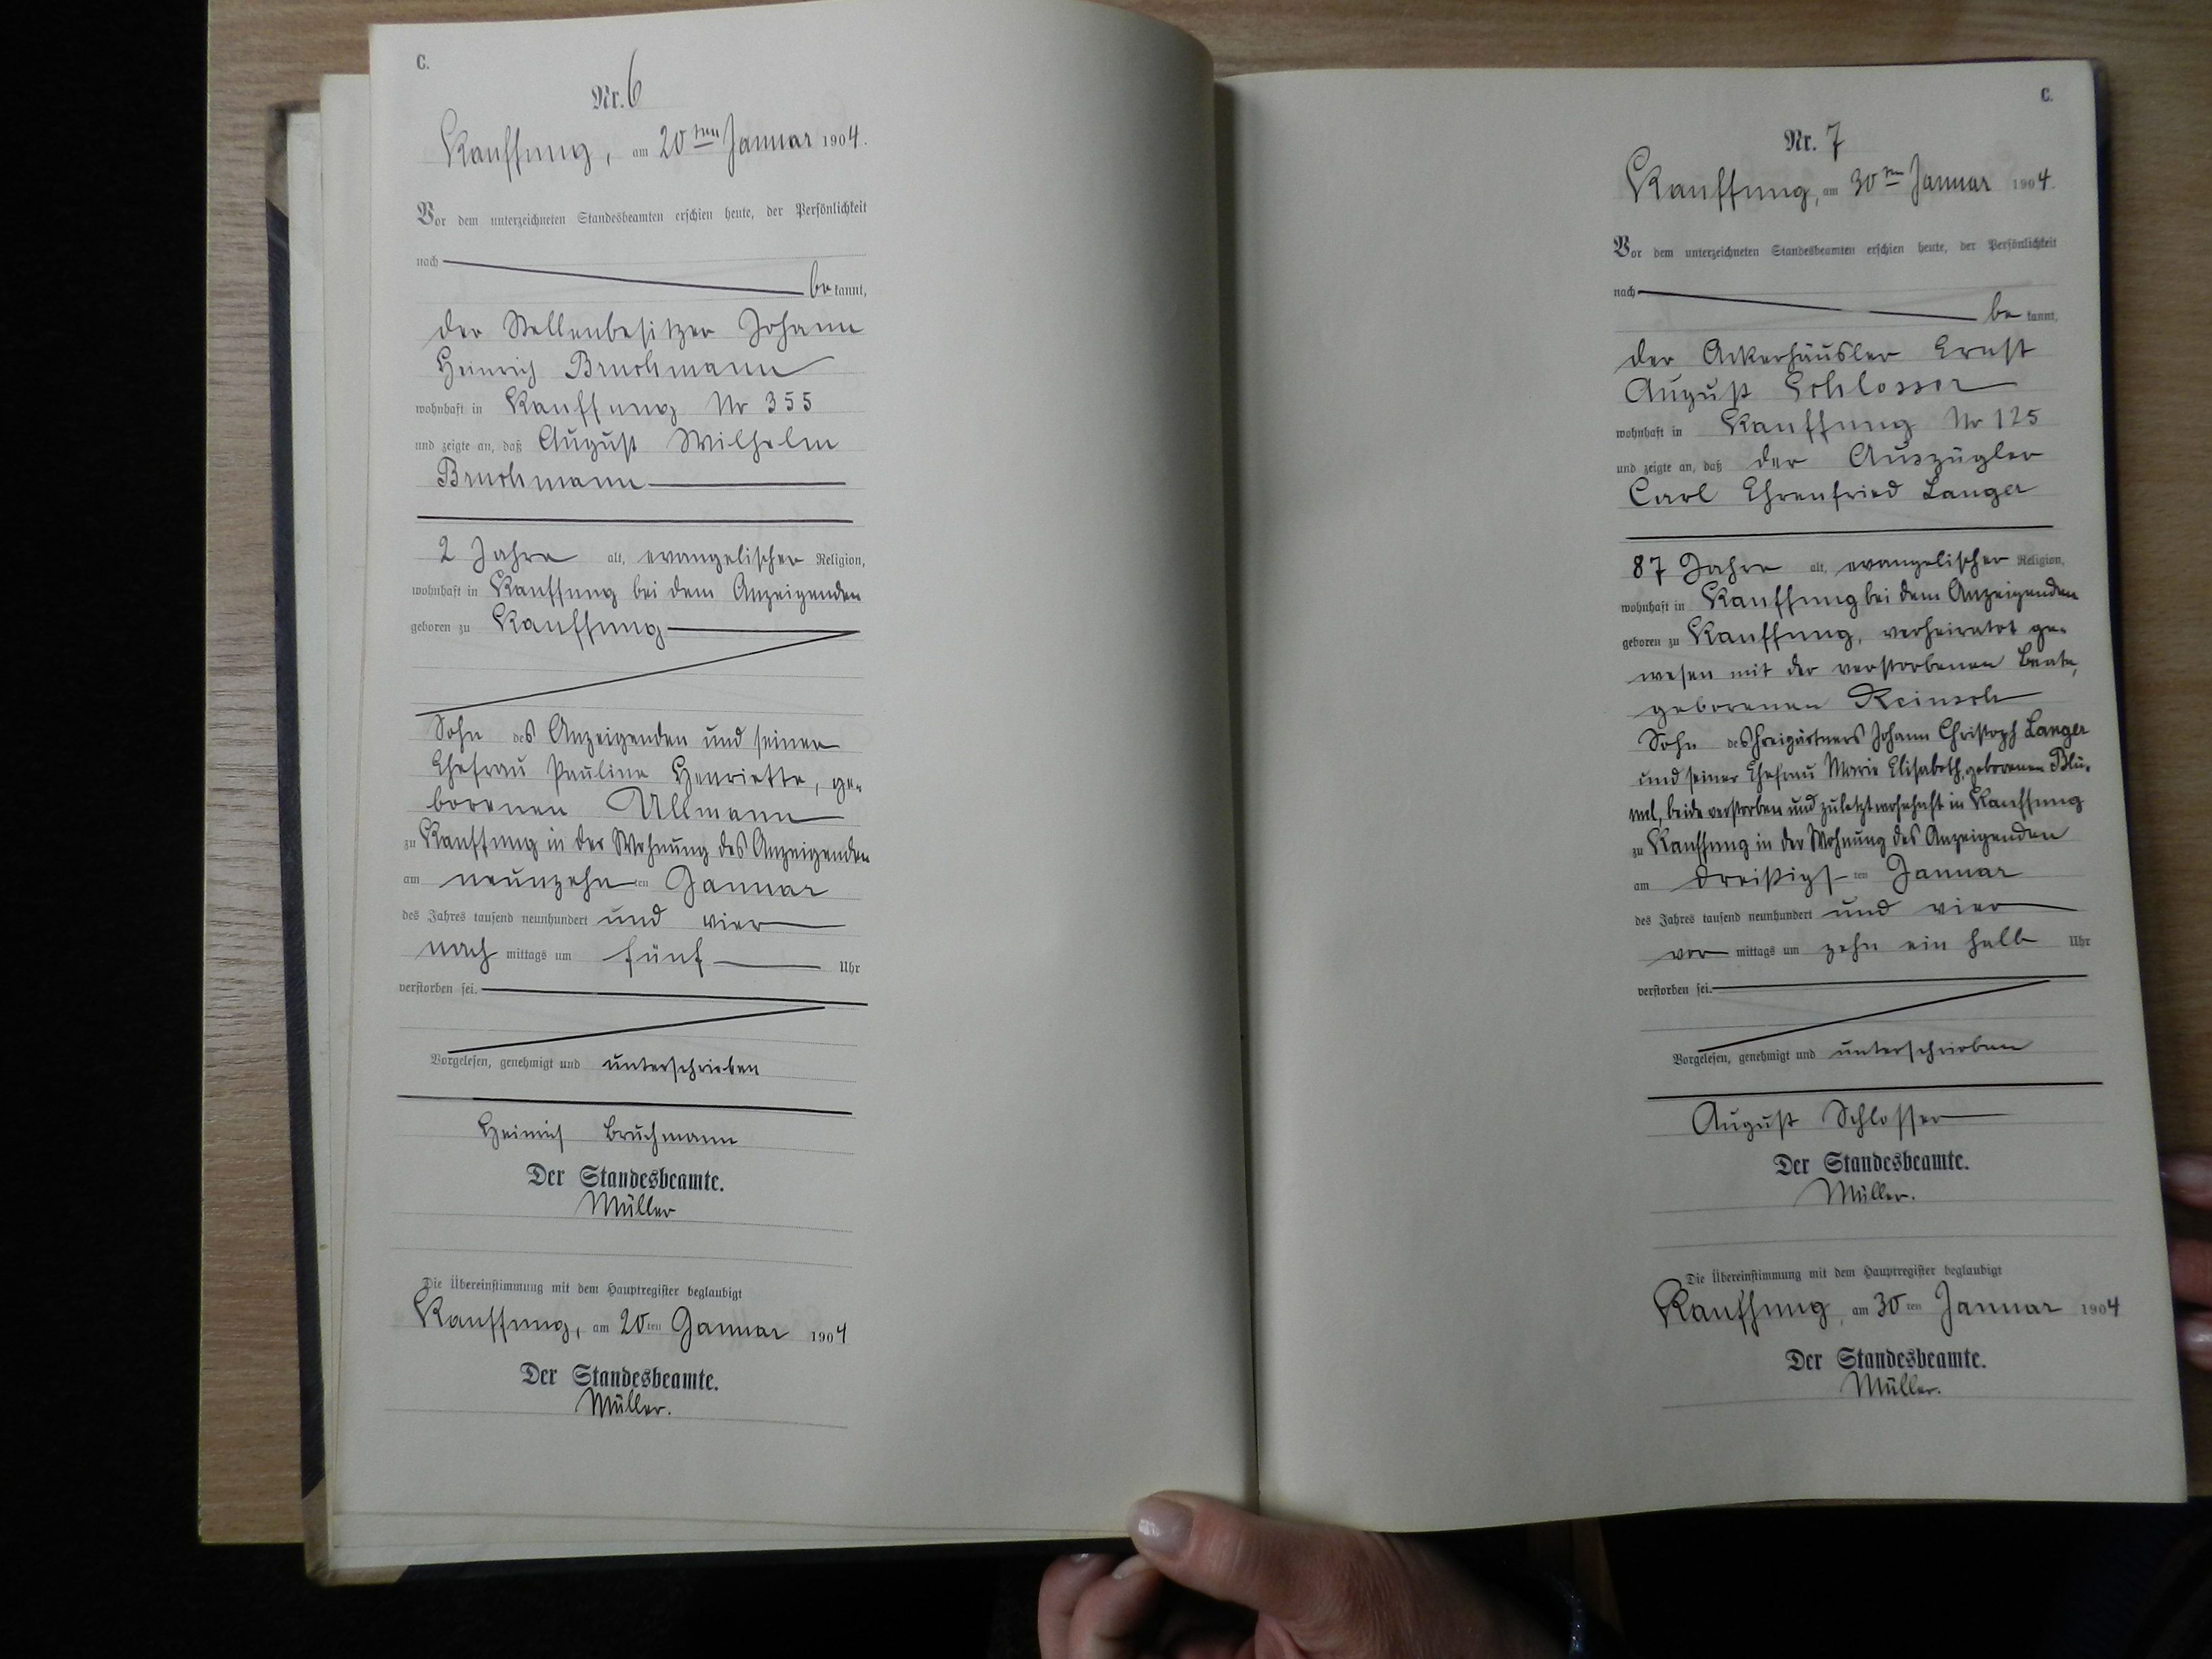 C.
Nr. 6
Kauffung, am 20ten Januar 1904.
Vor dem unterzeichneten Standesbeamten erschien heute, der Persönlichkeit
nach be kannt,
der Stellenbesitzer Johann
Heinrich Bruchmann
wohnhaft in Kauffung Nr 355
und zeigte an, daß August Wilhelm
Bruchmann
2 Jahre alt, evangelischer Religion,
wohnhaft in Kauffung bei dem Anzeigenden
geboren zu Kauffung
Sohn des Anzeigenden und seiner
Ehefrau Pauline Henriette, ge-
borenen Ullmann
zu Kauffung in der Wohnung des Anzeigenden
am neunzehn ten Januar
des Jahres tausend neunhundert und vier
nach mittags um fünf Uhr
verstorben sei.
Vorgelesen, genehmigt und unterschrieben
Heinrich Bruchmann
Der Standesbeamte.
Müller
Die Übereinstimmung mit dem Hauptregister beglaubigt
Kauffung, am 20ten Januar 1904
Der Standesbeamte.
Müller.
C.
Nr. 7
Kauffung, am 30ten Januar 1904.
Vor dem unterzeichneten Standesbeamten erschien heute, der Persönlichkeit
nach be kannt,
der Ackerhäusler Ernst
August Schlosser
wohnhaft in Kauffung Nr 125
und zeigte an, daß der Auszügler
Carl Ehrenfried Langer
87 Jahre alt, evangelischer Religion,
wohnhaft in Kauffung bei dem Anzeigenden
geboren zu Kauffung, verheiratet ge-
wesen mit der verstorbenen Beate,
geborenen Reinsch
Sohn des Freigärtners Johann Christoph Langer
und seiner Ehefrau Marie Elisabeth, geborenen Blü-
mel, beide verstorben und zuletzt wohnhaft in Kauffung
zu Kauffung in der Wohnung des Anzeigenden
am dreißigs ten Januar
des Jahres tausend neunhundert und vier
vor mittags um zehn ein halb Uhr
verstorben sei.
Vorgelesen, genehmigt und unterschrieben
August Schlosser
Der Standesbeamte.
Müller.
Die Übereinstimmung mit dem Hauptregister beglaubigt
Kauffung, am 30ten Januar 1904
Der Standesbeamte.
Müller.